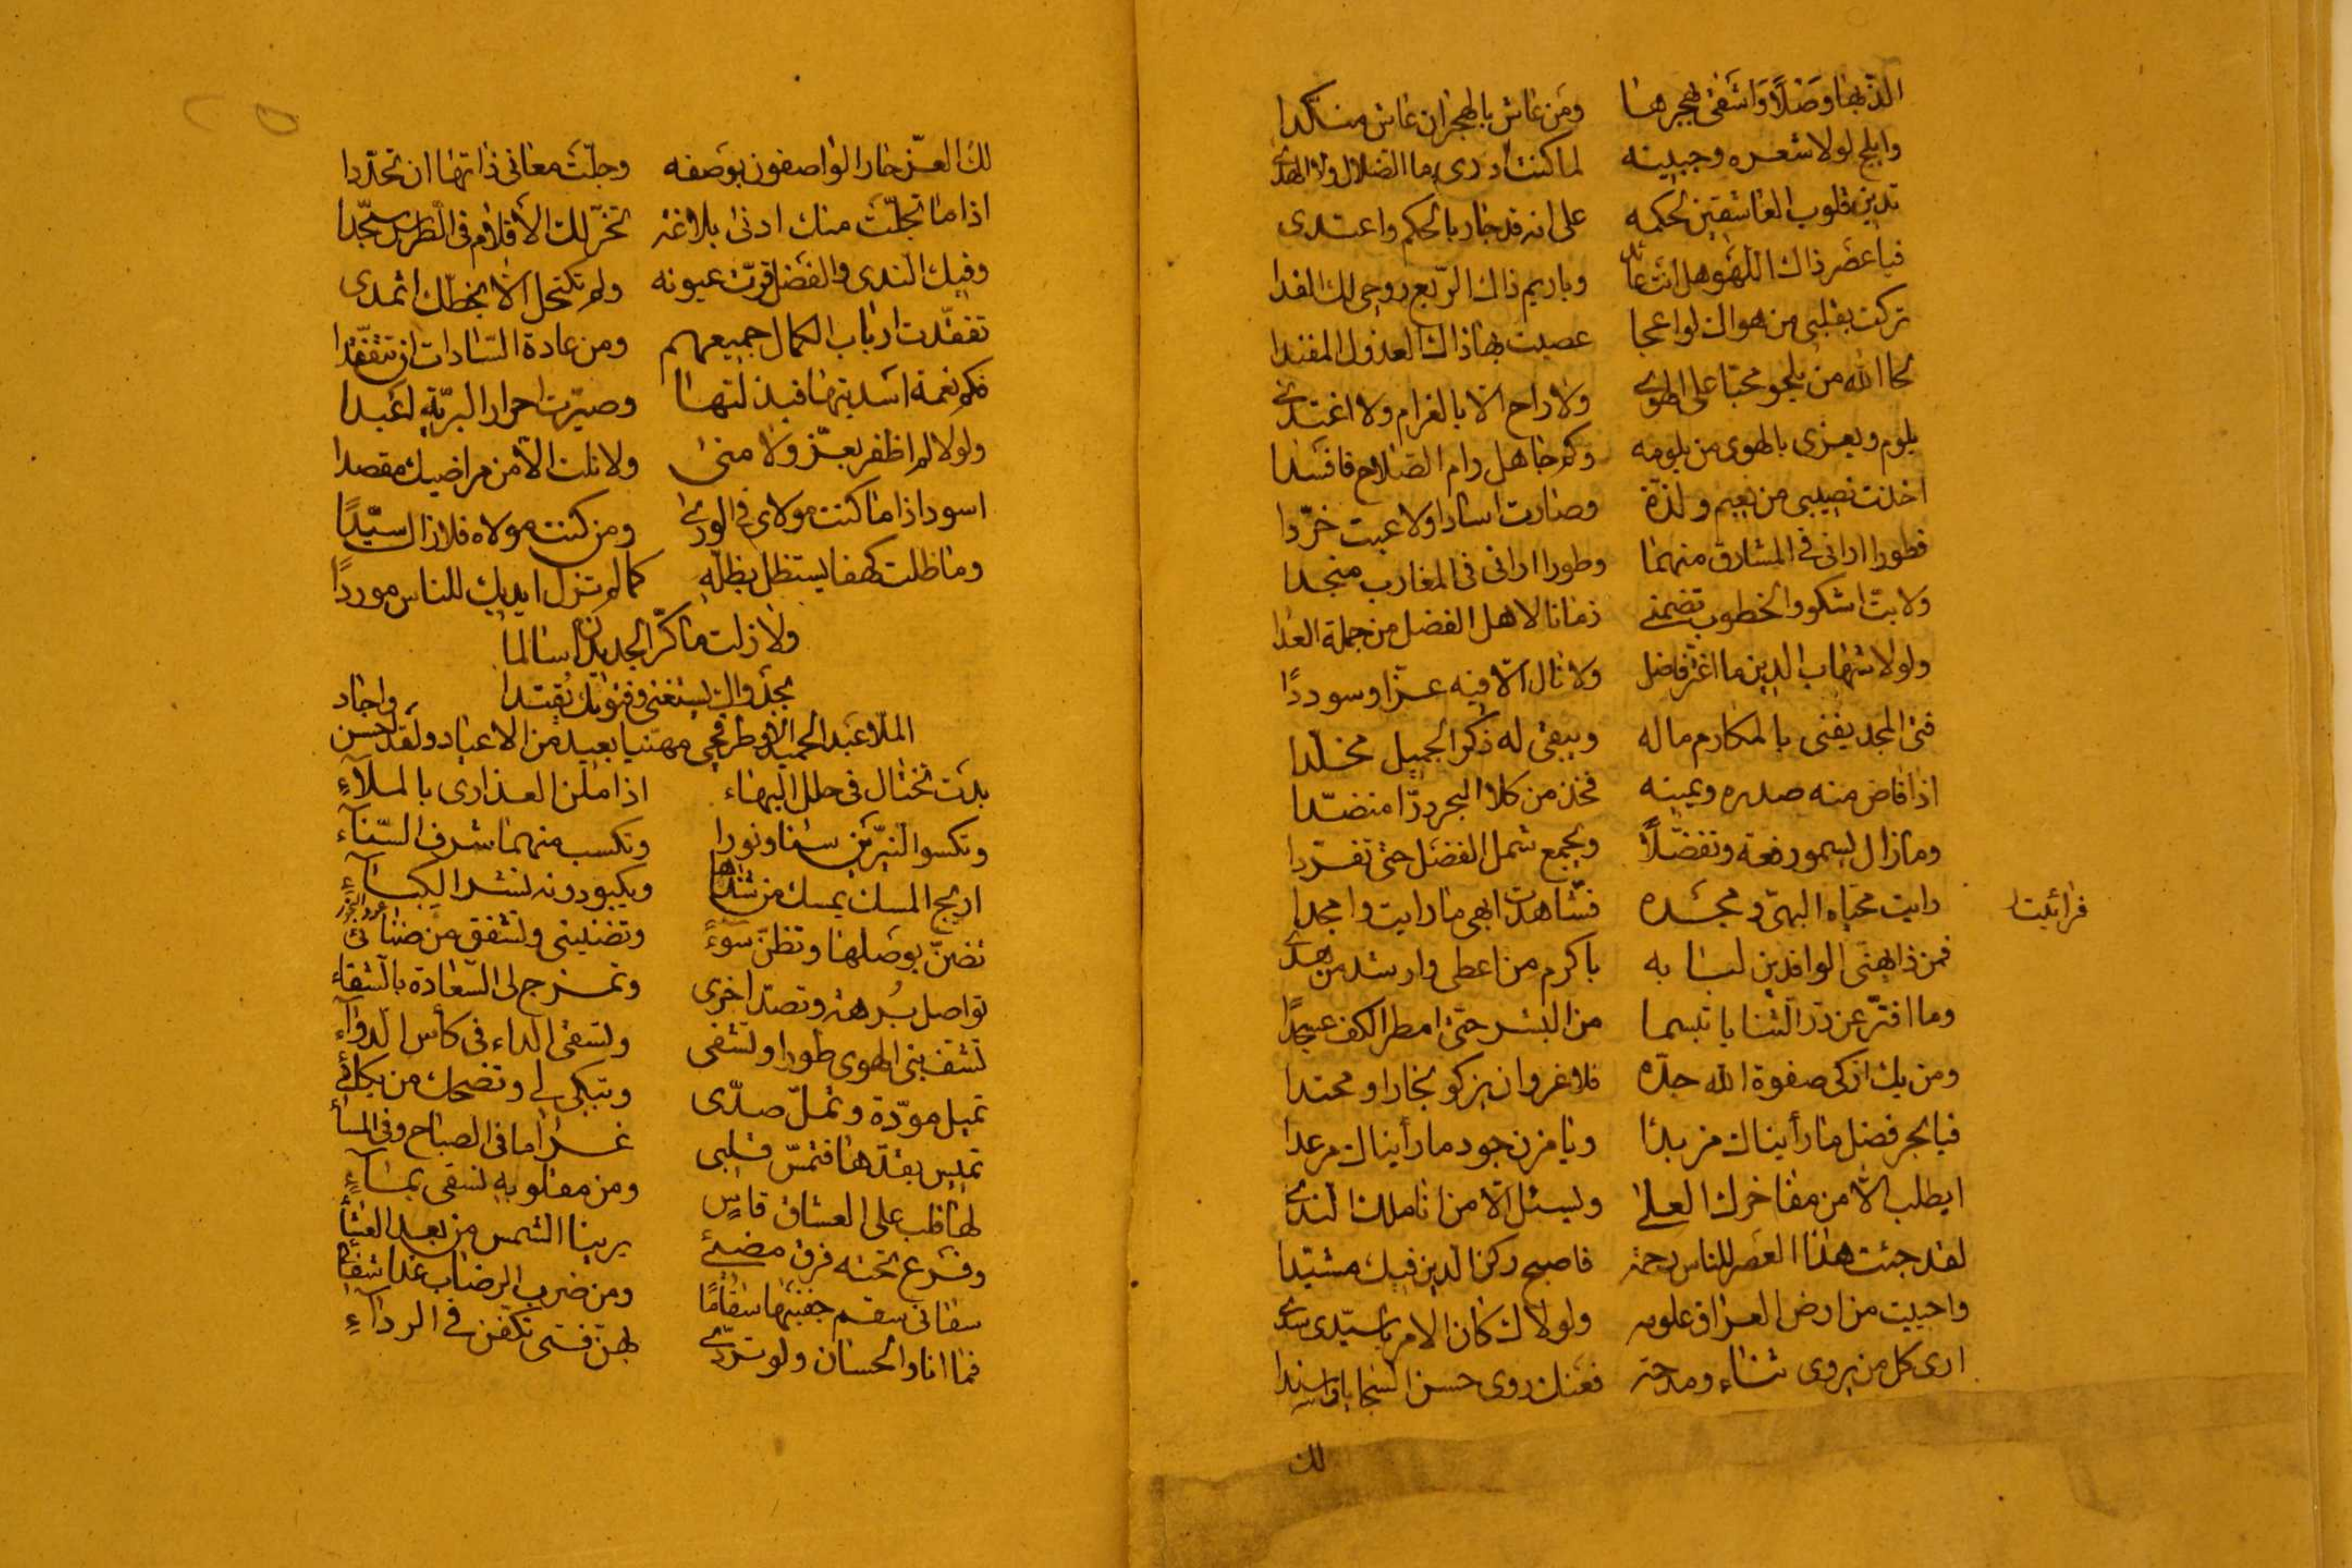 الذ بها وصلا واشقى بهجرها ومن عاش بالهجران عاش منكدا
وابلج لولا شعره وجبينه لما كنت ادرى ما الضلال ولا الهدى
تدين قلوب العاشقين لحكمه على انه قد جار بالحكم واعتدى
فيا عصر ذاك اللهو هل انت عائد وياريم ذاك الربع روحى لك الفدا
تركت بقلبى من هواك لواعجا عصيت بها ذاك العذول المفندا
لحا الله من يلحو محبا على الهوى ولا راح الا بالغرام ولا اغتدى
يلوم ويغرى بالهوى من يلومه وكم جاهل رام الصلاح فافسدا
اخذت نصيبى من نعيم ولذة وصارت اسادا ولاعبت خردا
فطورا ارانى فى المشارق متهما وطورا ارانى فى المغارب منجدا
ولا بت اشكو والخطوب تضمنى زمانا لاهل الفضل من جملة العدا
ولولا شهاب الدين ما اغتر فاضل ولا نال الا فيه عزا وسوددًا
فتى المجد يفنى بالمكارم ماله ويبقى له ذكر الجميل مخلدا
اذا فاض منه صدره ويمينه فخذ من كلا البحر درّا منضّدا
وما زال يسمو رفعة وتفضّلاً ويجمع شمل الفضل حتى تفردا
رايت محياه البهىّ ومجده فشاهدت ابهى ما رايت وامجدا
فرائيت
فمن ذا يهنى الوافدين لبابه باكرم من اعطى وارشد من هدى
وما افترّ عن درّ الثنايا تبسما من البشر حتى امطر الكف عسجدًا
ومن يك ازكى صفوة الله جدّه فلا غروان يزكو نجارا ومحتدا
فيا بحر فضل ما رأيناك مزبدًا ويا مزن جود ما رأيناك مرعدا
ايطلب الا من مفاخرك العلى ويسئل الا من اناملك الندى
لقد جئت هذا العصر للناس رحمة فاصبح ركن الدين فيك مشيّدا
واحييت من ارض العراق علومه ولولاك كان الامر يا سيّدى سدى
ارى كل من يروى ثناء ومدحة فعنك روى حسن السجايا واسندا
لك
لك العزّ حار الواصفون بوصفه وجلّت معانى ذاتها ان تحدّدا
اذا ما تجلّت منك ادنى بلاغة تخرّ لك الأقلام فى الطرس سجّدا
وفيك الندى والفضل قرّت عيونه ولم تكتحل الا بخطّك اثمدى
تفقّدت ارباب الكمال جميعهم ومن عادة السّادات ان تتفقّدا
فكم نعمة اسديتها فبذلتها وصيّرت احرار البريّة اعبدا
ولولا لم اظفر بعزّ ولا منى ولا نلت الا من مراضيك مقصدا
اسود اذا ما كنت مولاى فى الورى ومن كنت مولاه فلازال سيّدًا
وما ظلت كهفا يستظل بظلّه كما لم تزل ايديك للناس موردًا
ولا زلت ما كرّ الجديدان سالما
بجدواك يستغنى وفتواك يقتدا
واجاد
الملا عبد الحميد الاطرقجى مهنيا بعيد من الاعياد ولقد احسن
بدت تختال فى حلل البهاء اذا ملن العذارى بالملآءِ
وتكسو النيّرين سنا ونورا وتكسب منهما شرف السّنآء
اريج المسك يمسك من شذاها ويكبو دونه لنشر الكبآءِ
تضنّ بوصلها وتظنّ سوءً وتضنينى وتشفق من ضنائى
تواصل بُرهة وتصدّ اخرى وتمزج لى السّعادة بالشقاء
تشفّ بنى الهوى طورا وتشفى وتسقى الداء فى كأس الدوآء
تميل مودّة وتملّ صدّى وتبكى لى وتضحك من بكائى
تميس بقدّها فتمسّ قلبى غراما فى الصباح وفى المسآ
لها قلب على العشاق قاسٍ ومن مقلوبه تسقى بمسآءٍ
وفرع تحته فرق مضئ يرينا الشمس من بعد العشآ
سقانى سقم جفنيها سقامًا ومن ضرب الرضاب غدا شفائى
فما انا والحسان ولو تردّى بهنّ فتى تكفن فى الردآءِ